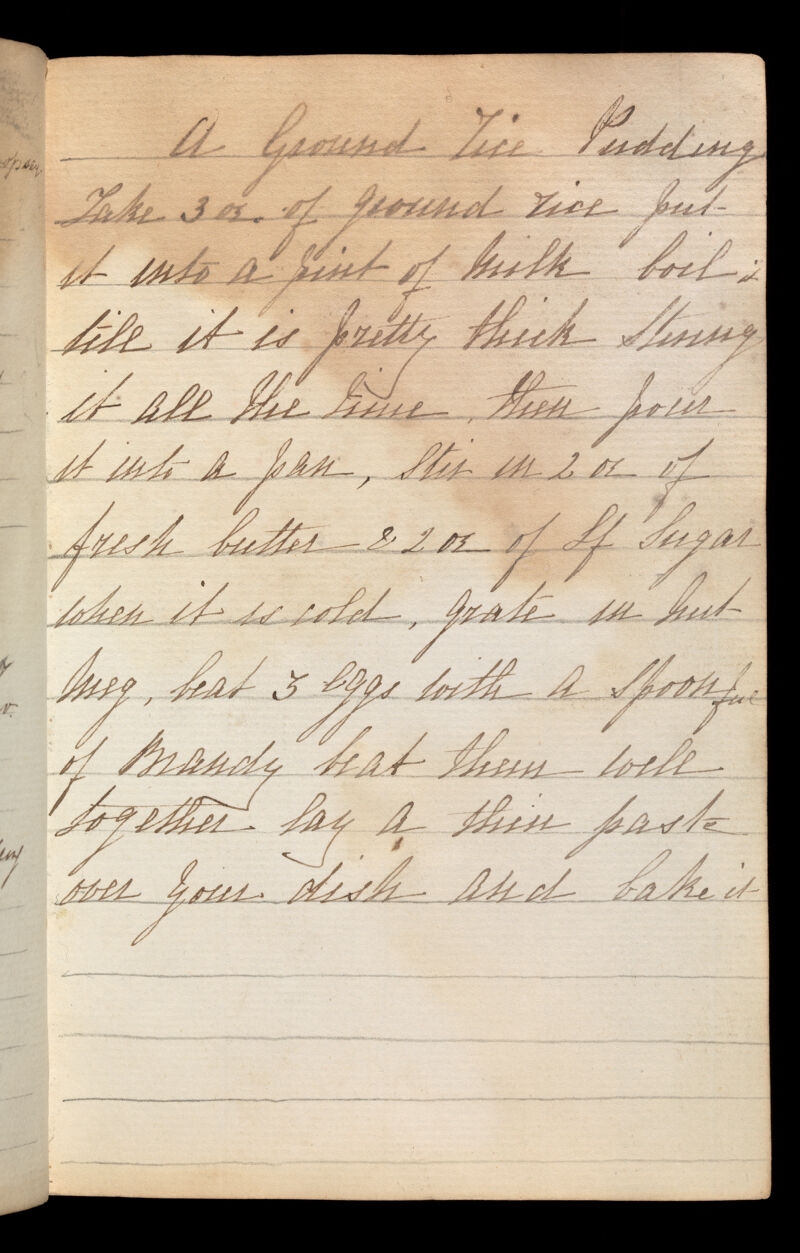 A Ground Rice Pudding
Take 3 oz. of ground rice put
it into a pint of Milk boil it
till it is pretty thick Stiring
it all the time, then pour
it into a pan, Stir in 2 oz of
fresh butter & 2 oz of Lf Sugar
when it is cold, grate in Nut
Meg, beat 3 Eggs with a Spoonful
of Brandy beat them well
together lay a thin paste
over your dish and bake it